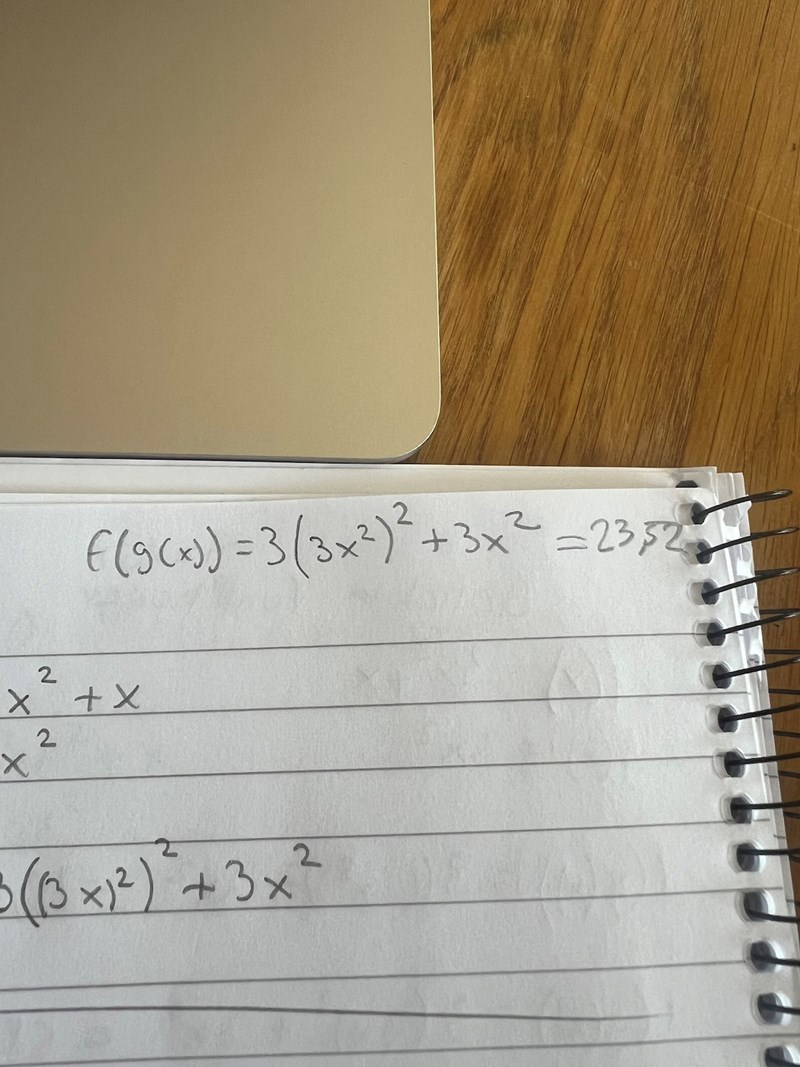 f(g(x)) = 3(3x²)² + 3x² = 2352
x² + x
x²
3((3x)²)² + 3x²